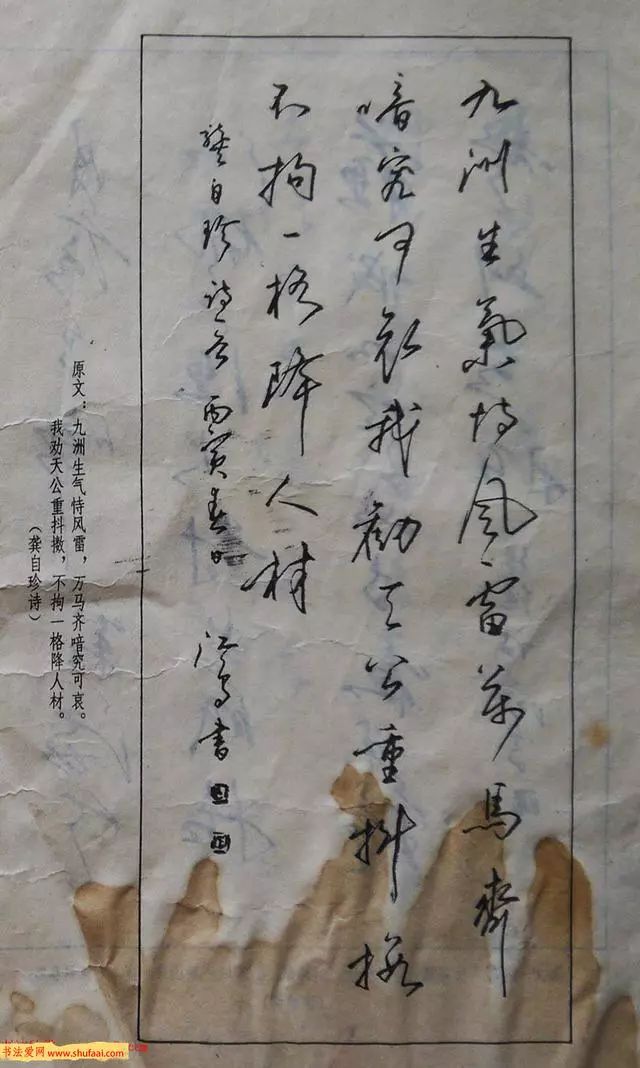 九洲生氣恃風雷萬馬齊
喑究可哀我勸天公重抖擻
不拘一格降人材
龔自珍詩 丙寅春日 書
原文：九洲生气恃风雷，万马齐喑究可哀。
我劝天公重抖擞，不拘一格降人材。
（龚自珍诗）
书法爱网 www.shufaai.com